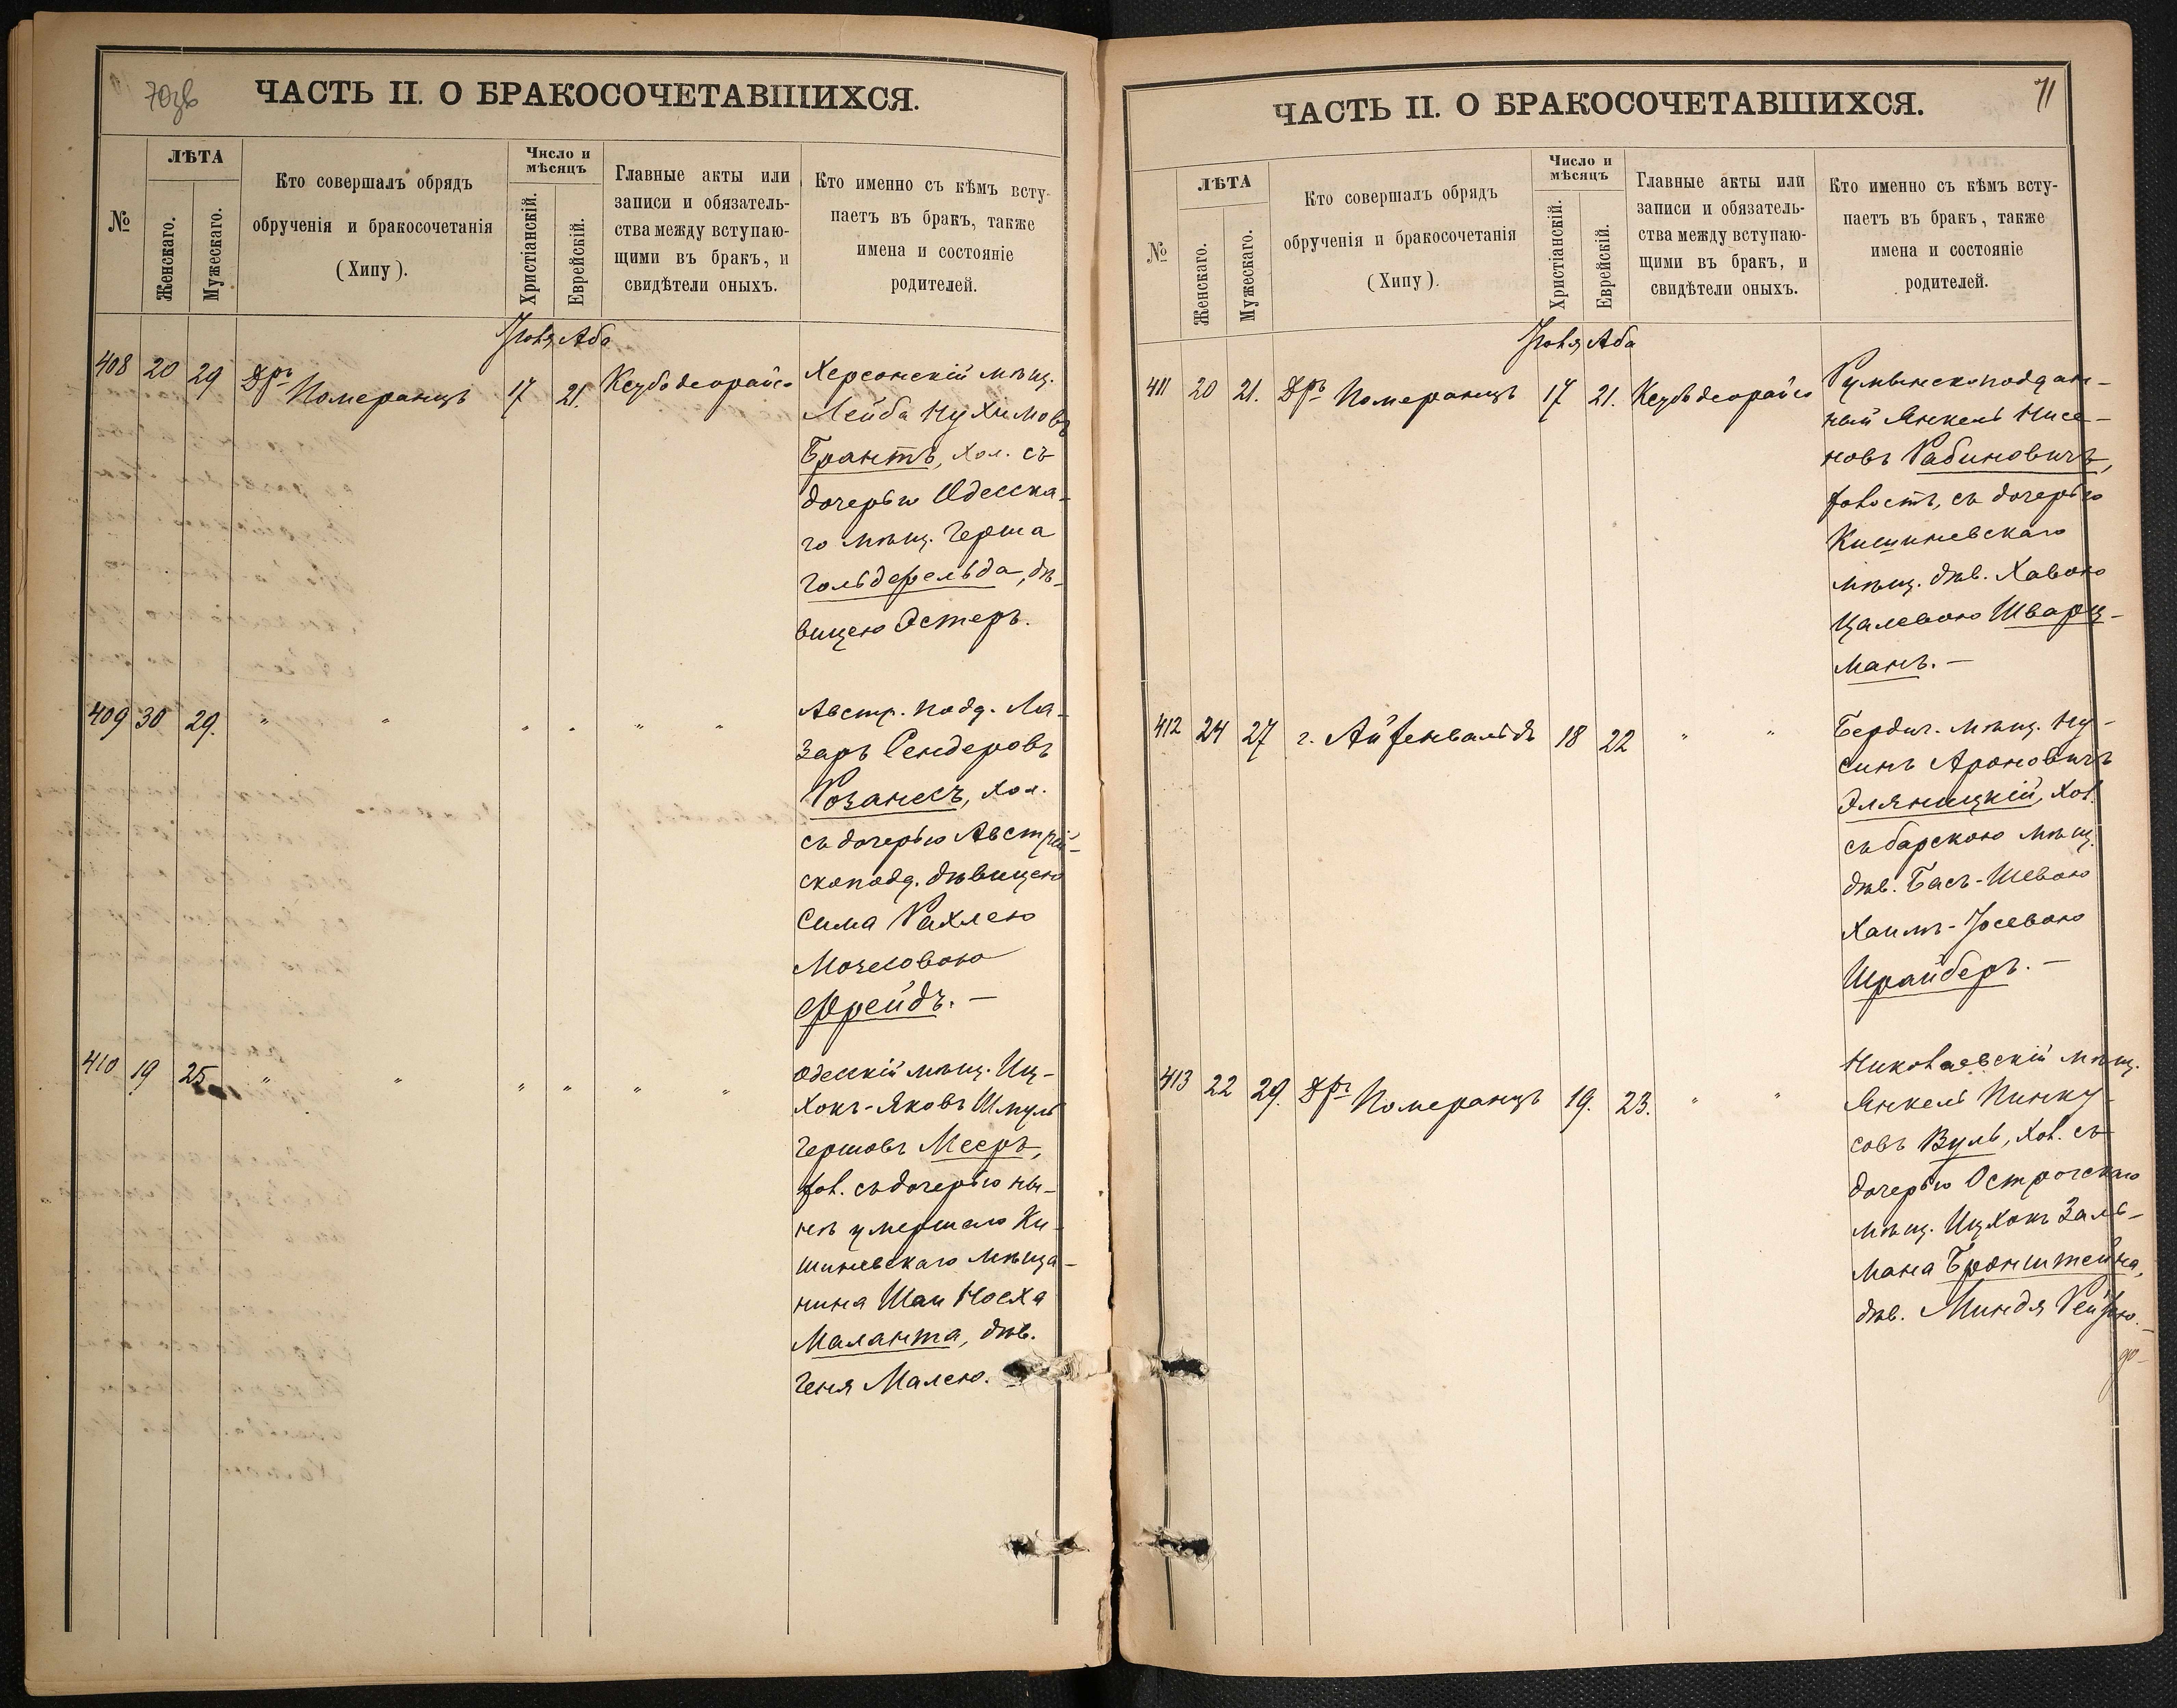 70зв
ЧАСТЬ II. О БРАКОСОЧЕТАВШИХСЯ.
№
ЛѢТА
Женскаго.
Мужескаго.
Кто совершалъ обрядъ
обрученія и бракосочетанія
(Хипу).
Число и
мѣсяцъ
Христіанскій.
Еврейскій.
Главные акты или
записи и обязатель-
ства между вступаю-
щими въ бракъ, и
свидѣтели оныхъ.
Кто именно съ кѣмъ всту-
паетъ въ бракъ, также
имена и состояніе
родителей.
Іюля Аба
408 20 29 Дръ Померанцъ 17 21. Ксубо деорайсо
Херсонскій мѣщ.
Лейба Нухимовъ
Брантъ, хол. съ
дочерью Одесска-
го мѣщ. Герша
Гольдфельда, дѣ-
вицею Эстеръ.
409 30 29. " " " " " "
Австр. подд. Ла-
заръ Сендеровъ
Розанесъ, хол.
съ дочерью Австрій-
скоподд. дѣвицею
Сима Рахлею
Мочесовою
Фрейдъ. —
410 19 25 " " " " " "
Одесскій мѣщ. Иц-
хокъ-Яковъ Шмуль
Гершовъ Мееръ,
хол. съ дочерью ны-
нѣ умершаго Ки-
шиневскаго мѣща-
нина Шаи Ноеха
Маланта, дѣв.
Геня Малею.
71
ЧАСТЬ II. О БРАКОСОЧЕТАВШИХСЯ.
№
ЛѢТА
Женскаго.
Мужескаго.
Кто совершалъ обрядъ
обрученія и бракосочетанія
(Хипу).
Число и
мѣсяцъ
Христіанскій.
Еврейскій.
Главные акты или
записи и обязатель-
ства между вступаю-
щими въ бракъ, и
свидѣтели оныхъ.
Кто именно съ кѣмъ всту-
паетъ въ бракъ, также
имена и состояніе
родителей.
Іюля Аба
411 20 21. Дръ Померанцъ 17 21. Ксубъ деорайсо
Румынскоподдан-
ный Янкель Нисе-
новъ Рабиновичъ,
холостъ, съ дочерью
Кишиневскаго
мѣщ. дѣв. Хавою
Цалевою Шварц-
манъ. —
412 24 27 г. Айзенвальдъ 18 22 " "
Бердич. мѣщ. Ну-
синъ Ароновичъ
Эляницкій, хол.
съ барскою мѣщ.
дѣв. Бася-Шевою
Хаимъ-Іосевою
Шрайберъ. —
413 22 29. Дръ Померанцъ 19. 23. " "
Николаевскій мѣщ.
Янкель Пинку-
совъ Вуль, хол. съ
дочерью Острогскаго
мѣщ. Ицхокъ Заль-
мана Бронштейна,
дѣв. Миндя Рейзею. —